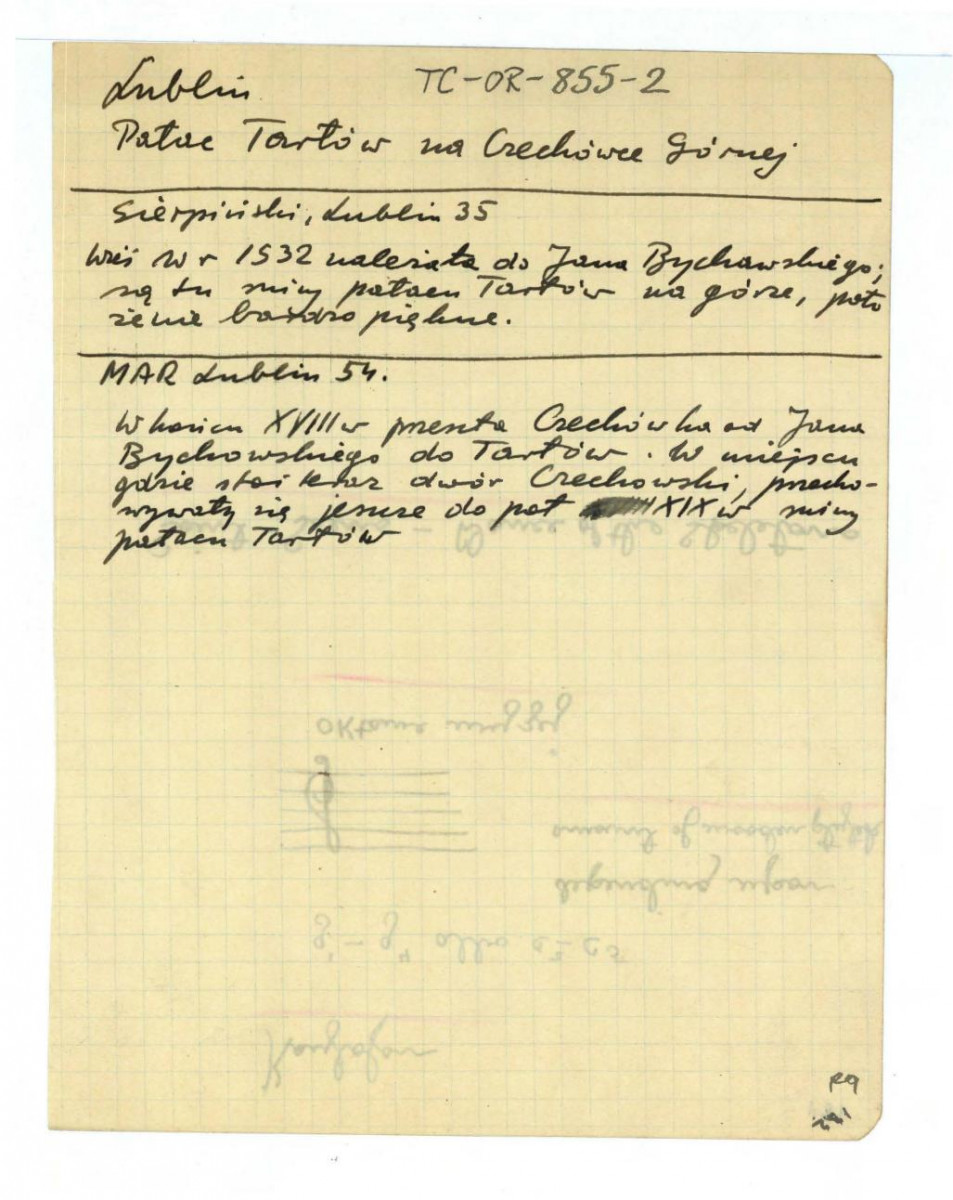 Lublin TC-OR-855-2
Pałac Tarłów na Czechówce Górnej
Sierpiński, Lublin 35
Wieś w r 1532 należała do Jana Bychawskiego;
są tu ruiny pałacu Tarłów na górze, poło
żenie bardzo piękne.
MAR Lublin 54.
W końcu XVIII w przeszła Czechówka od Jana
Bychowskiego do Tarłów. W miejscu
gdzie stoi teraz dwór Czechowski, przecho-
wywały się jeszcze do poł XIX w ruiny
pałacu Tarłów